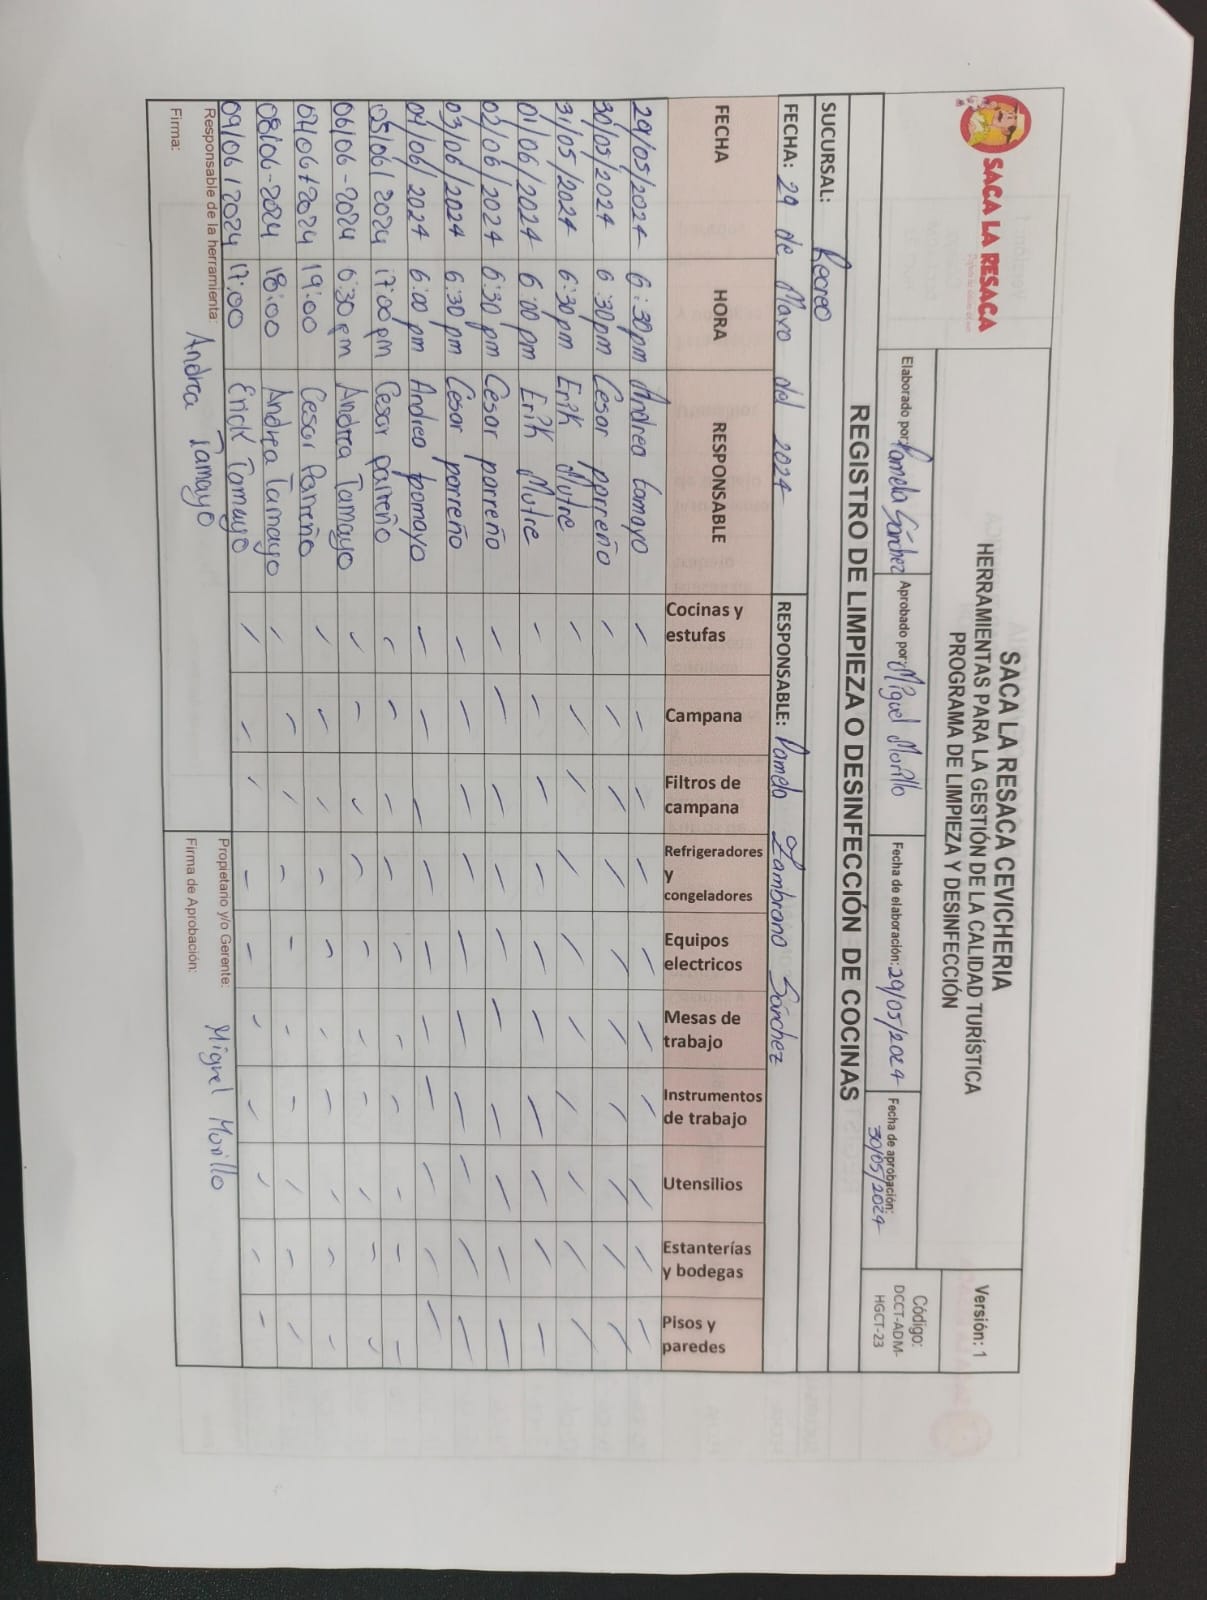 SACA LA RESACA
SACA LA RESACA CEVICHERIA
HERRAMIENTAS PARA LA GESTIÓN DE LA CALIDAD TURÍSTICA
PROGRAMA DE LIMPIEZA Y DESINFECCIÓN
Versión: 1
Elaborado por: Pamela Sánchez
Aprobado por: Miguel Morillo
Fecha de elaboración: 29/05/2024
Fecha de aprobación: 30/05/2024
Código: DCCT-ADM-HGCT-23
REGISTRO DE LIMPIEZA O DESINFECCIÓN DE COCINAS
SUCURSAL: Recreo
FECHA: 29 de Mayo del 2024 RESPONSABLE: Pamela Zambrano Sánchez
FECHA HORA RESPONSABLE Cocinas y estufas Campana Filtros de campana Refrigeradores y congeladores Equipos electricos Mesas de trabajo Instrumentos de trabajo Utensilios Estanterías y bodegas Pisos y paredes
29/05/2024 6:30pm Andrea tamayo
30/05/2024 6:30pm Cesar parreño
31/05/2024 6:30pm Erik Mutre
01/06/2024 6:00 pm Erik Mutre
02/06/2024 6:30 pm Cesar parreño
03/06/2024 6:30 pm Cesar parreño
04/06/2024 6:00 pm Andrea tamayo
05/06/2024 17:00 pm Cesar parreño
06/06-2024 6:30 pm Andrea Tamayo
07/06/2024 19:00 Cesar Parreño
08/06-2024 18:00 Andrea Tamayo
09/06/2024 17:00 Erick Tamayo
Responsable de la herramienta: Andrea Tamayo
Firma:
Propietario y/o Gerente: Miguel Morillo
Firma de Aprobación: